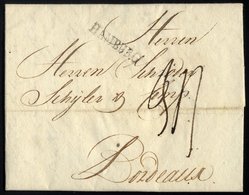 Herren
HAMBURG
Herren Schröder
Schÿler & Cop.
Bordeaux